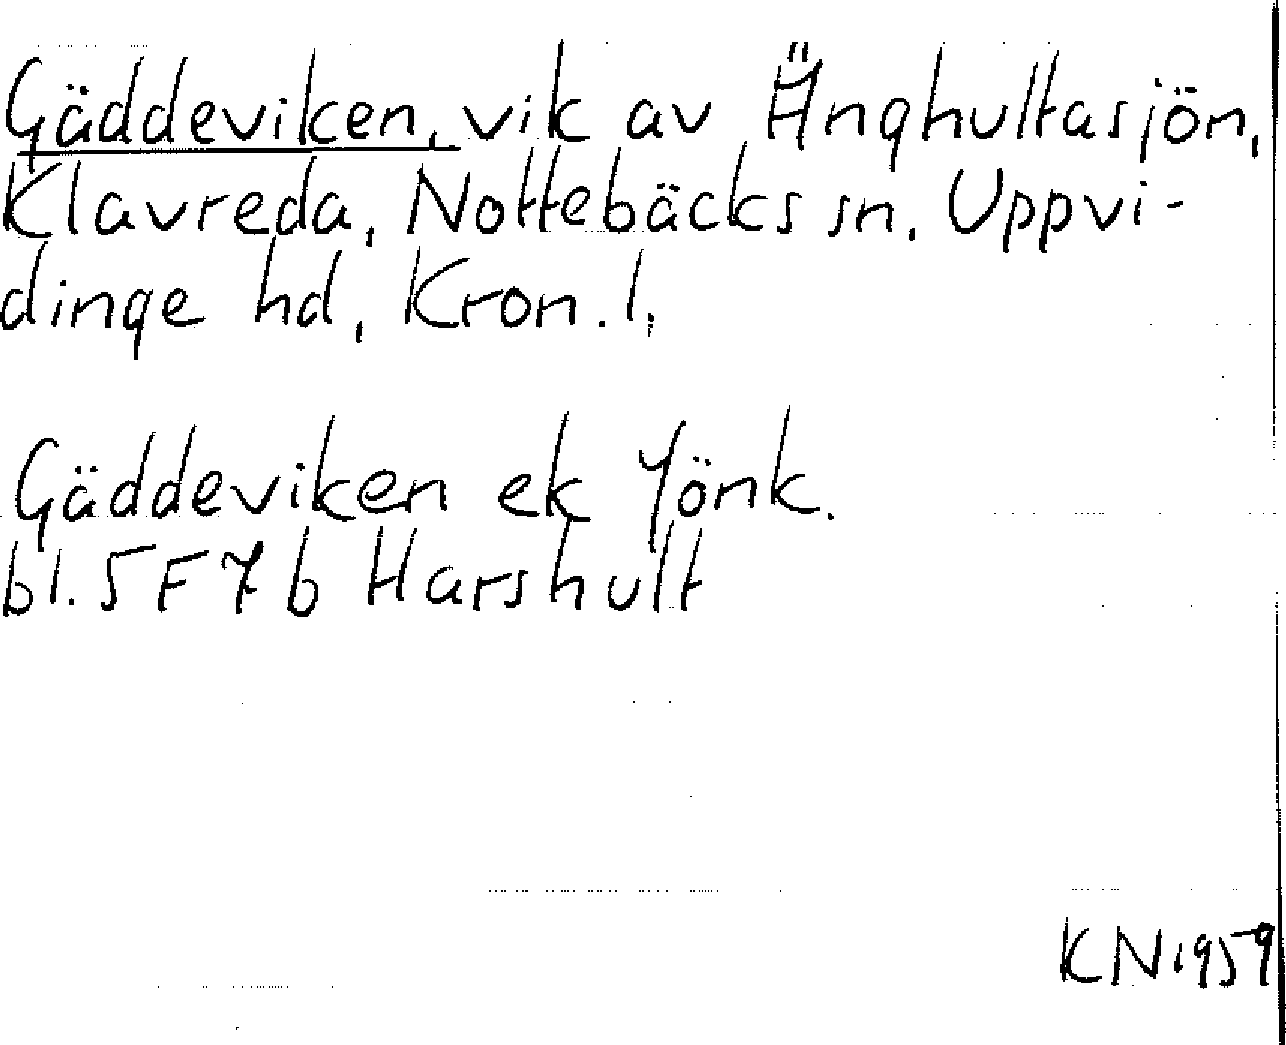 Gäddeviken, vik av Änghultasjön,
Klavreda, Nottebäcks sn, Uppvi-
dinge hd, Kron. l.
Gäddeviken ek Jönk.
bl. 5F7b Harshult
KN 1959